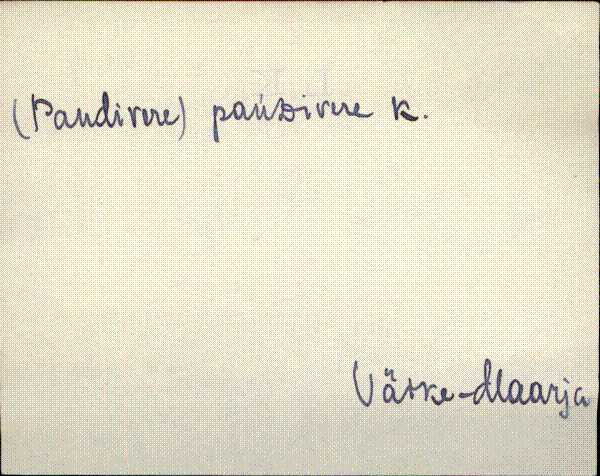 (Pandivere) pańdivere k.
Väike-Maarja